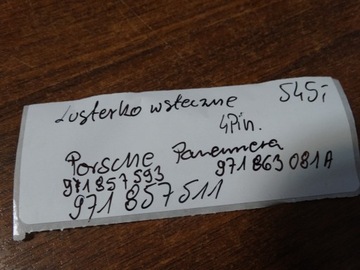 Lusterko wsteczne 545,-
4Pin.
Porsche Panamera
971857593 971 863 081A
971 857 511